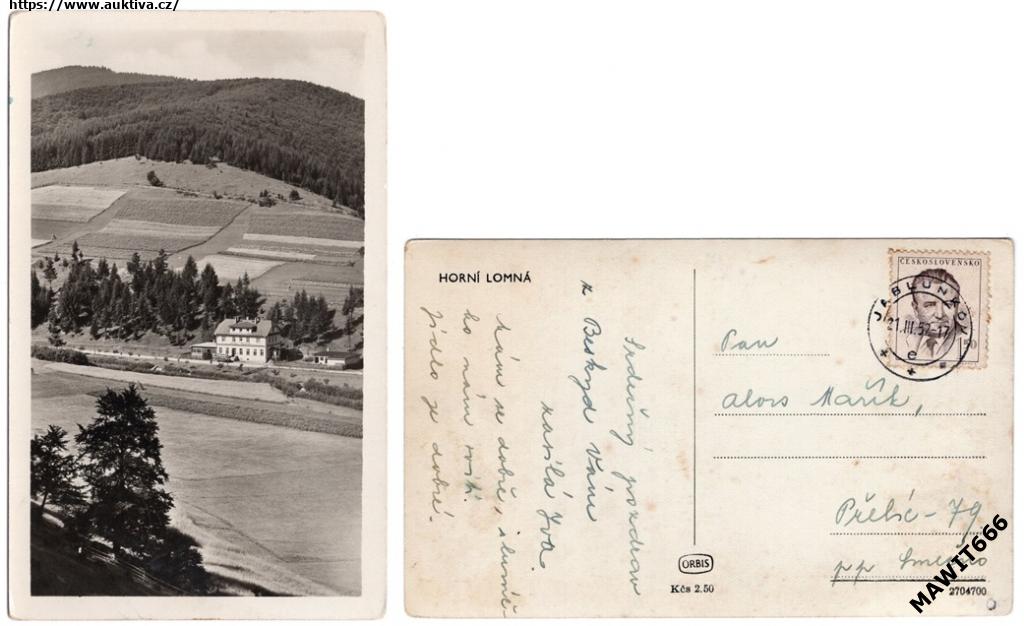 https://www.auktiva.cz/
HORNÍ LOMNÁ
Srdečný pozdrav
z Beskyd Vám
zasílá Iva.
Mám se dobře,
ho nám
jídlo je dobré.
ORBIS
Kčs 2.50
ČESKOSLOVENSKO
JABLUNKOV
21.III.52-17
e
1.50
Pan
Alois Mařík,
Přelíc - 79
pp Smečno
2704700
MAWIT666